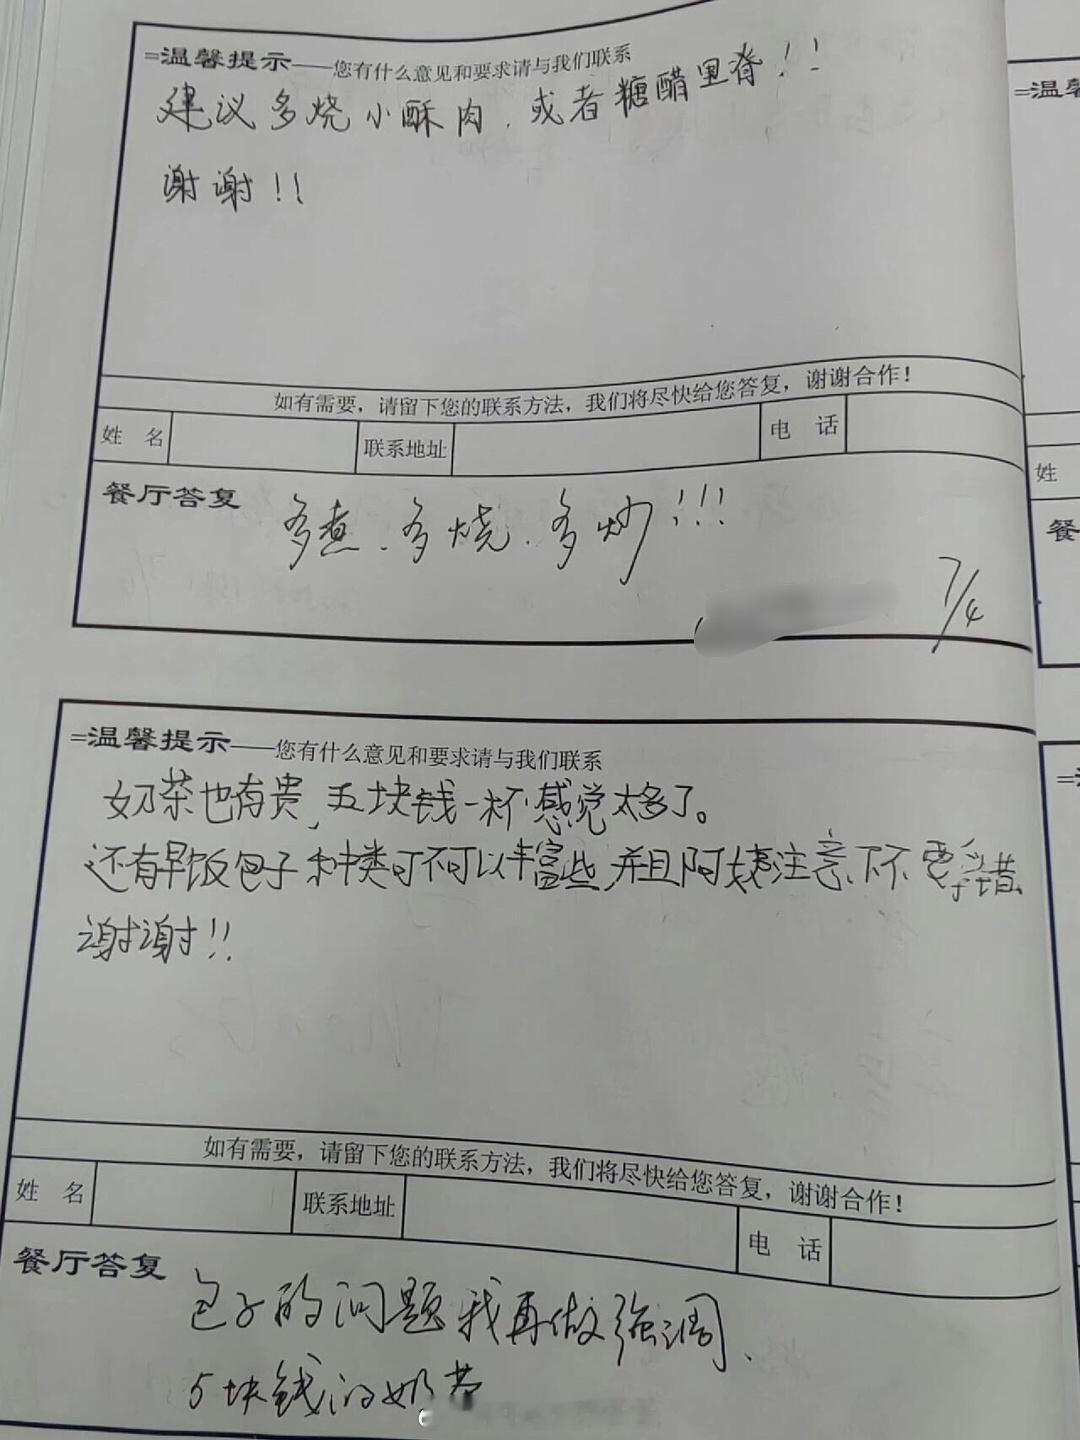 =温馨提示——您有什么意见和要求请与我们联系
建议多烧小酥肉，或者糖醋里脊！！
谢谢！！
如有需要，请留下您的联系方法，我们将尽快给您答复，谢谢合作！
姓 名 联系地址 电 话
餐厅答复
多煮、多烧、多炒！！！
7/4
=温馨提示——您有什么意见和要求请与我们联系
奶茶也有贵，五块钱一杯感觉太多了。
还有早饭包子种类可不可以丰富些，并且阿姨注意下不要拿错、
谢谢！！
如有需要，请留下您的联系方法，我们将尽快给您答复，谢谢合作！
姓 名 联系地址 电 话
餐厅答复
包子的问题我再做强调、
5块钱的奶茶
=温
姓
餐